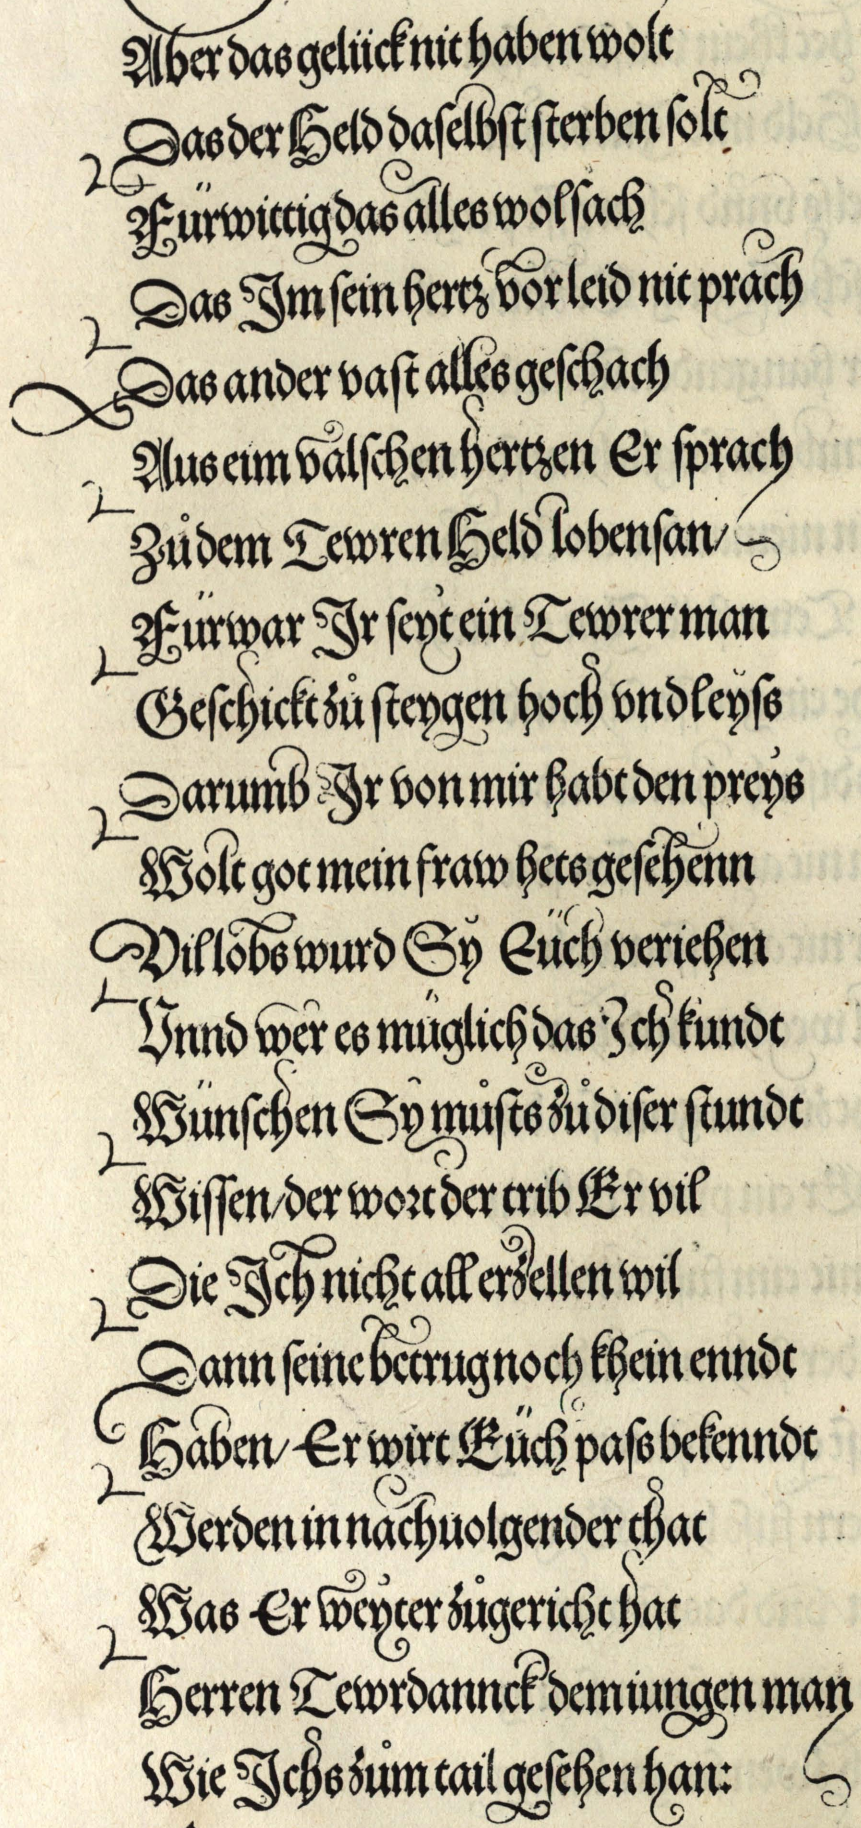 Aber das gelück nit haben wolt
Das der Held daselbst sterben solt
Fürwittig das alles wol sach
Das Im sein hertz vor leid nit prach
Das ander vast alles geschach
Aus eim valschen hertzen Er sprach
Zůdem Tewren Held lobensan/
Fürwar Ir seyt ein Tewrer man
Geschickt zů steygen hoch vnd leyss
Darumb Ir von mir habt den preys
Wolt got mein fraw hets gesehenn
Vil lobs wurd Sy Eüch veriehen
Vnnd wer es müglich das Ich kundt
Wünschen Sy můsts zů diser stundt
Wissen/der wort der trib Er vil
Die Ich nicht all erzellen wil
Dann seine betrug noch khein enndt
Haben/ Er wirt Eüch pass bekenndt
Werden in nachuolgender that
Was Er weyter zůgericht hat
Herren Tewrdannck dem iungen man
Wie Ichs zům tail gesehen han: